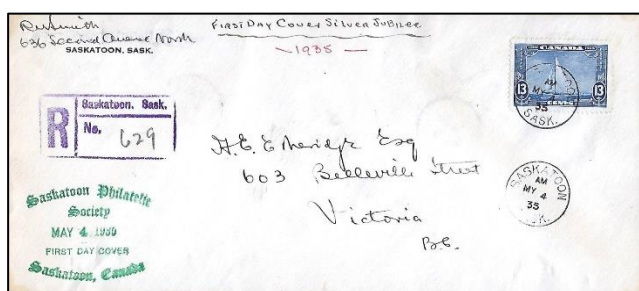 R.W. Smith
636 Second Avenue North
SASKATOON, SASK.
FIRST DAY COVER SILVER JUBILEE
~1935~
CANADA
13 13
CENTS
AM
MY 4
35
SASK.
R
Saskatoon, Sask.
No. 629
H.E. Etheridge Esq
603 Belleville Street
Victoria
B.C.
SASKATOON
AM
MY 4
35
SASK.
Saskatoon Philatelic
Society
MAY 4 1935
FIRST DAY COVER
Saskatoon, Canada